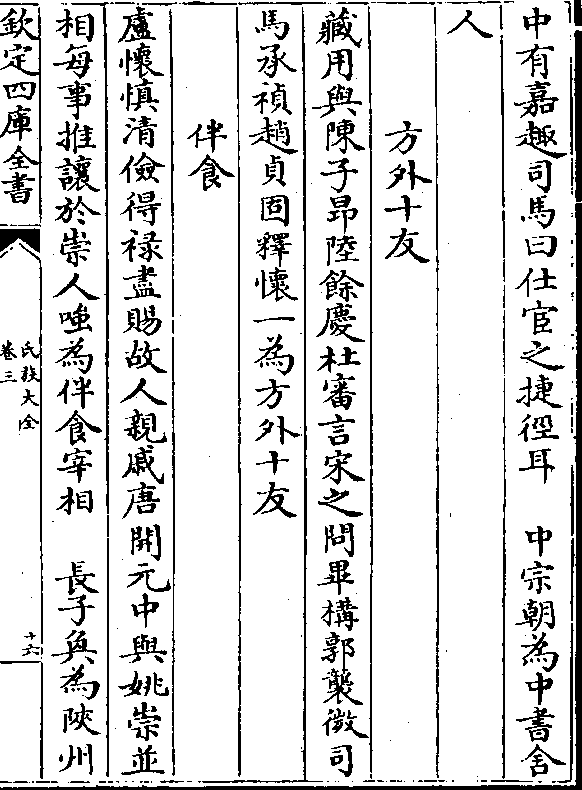 中有嘉趣司馬曰仕宦之捷徑耳　中宗朝為中書舍
人
方外十友
藏用與陳子昂陸餘慶杜審言宋之問畢構郭襲微司
馬承禎趙貞固釋懷一為方外十友
伴食
盧懷慎清儉得祿盡賜故人親戚唐開元中與姚崇並
相每事推讓於崇人嗤為伴食宰相　長子奐為陜州
欽定四庫全書
氏族大全
卷三
十六